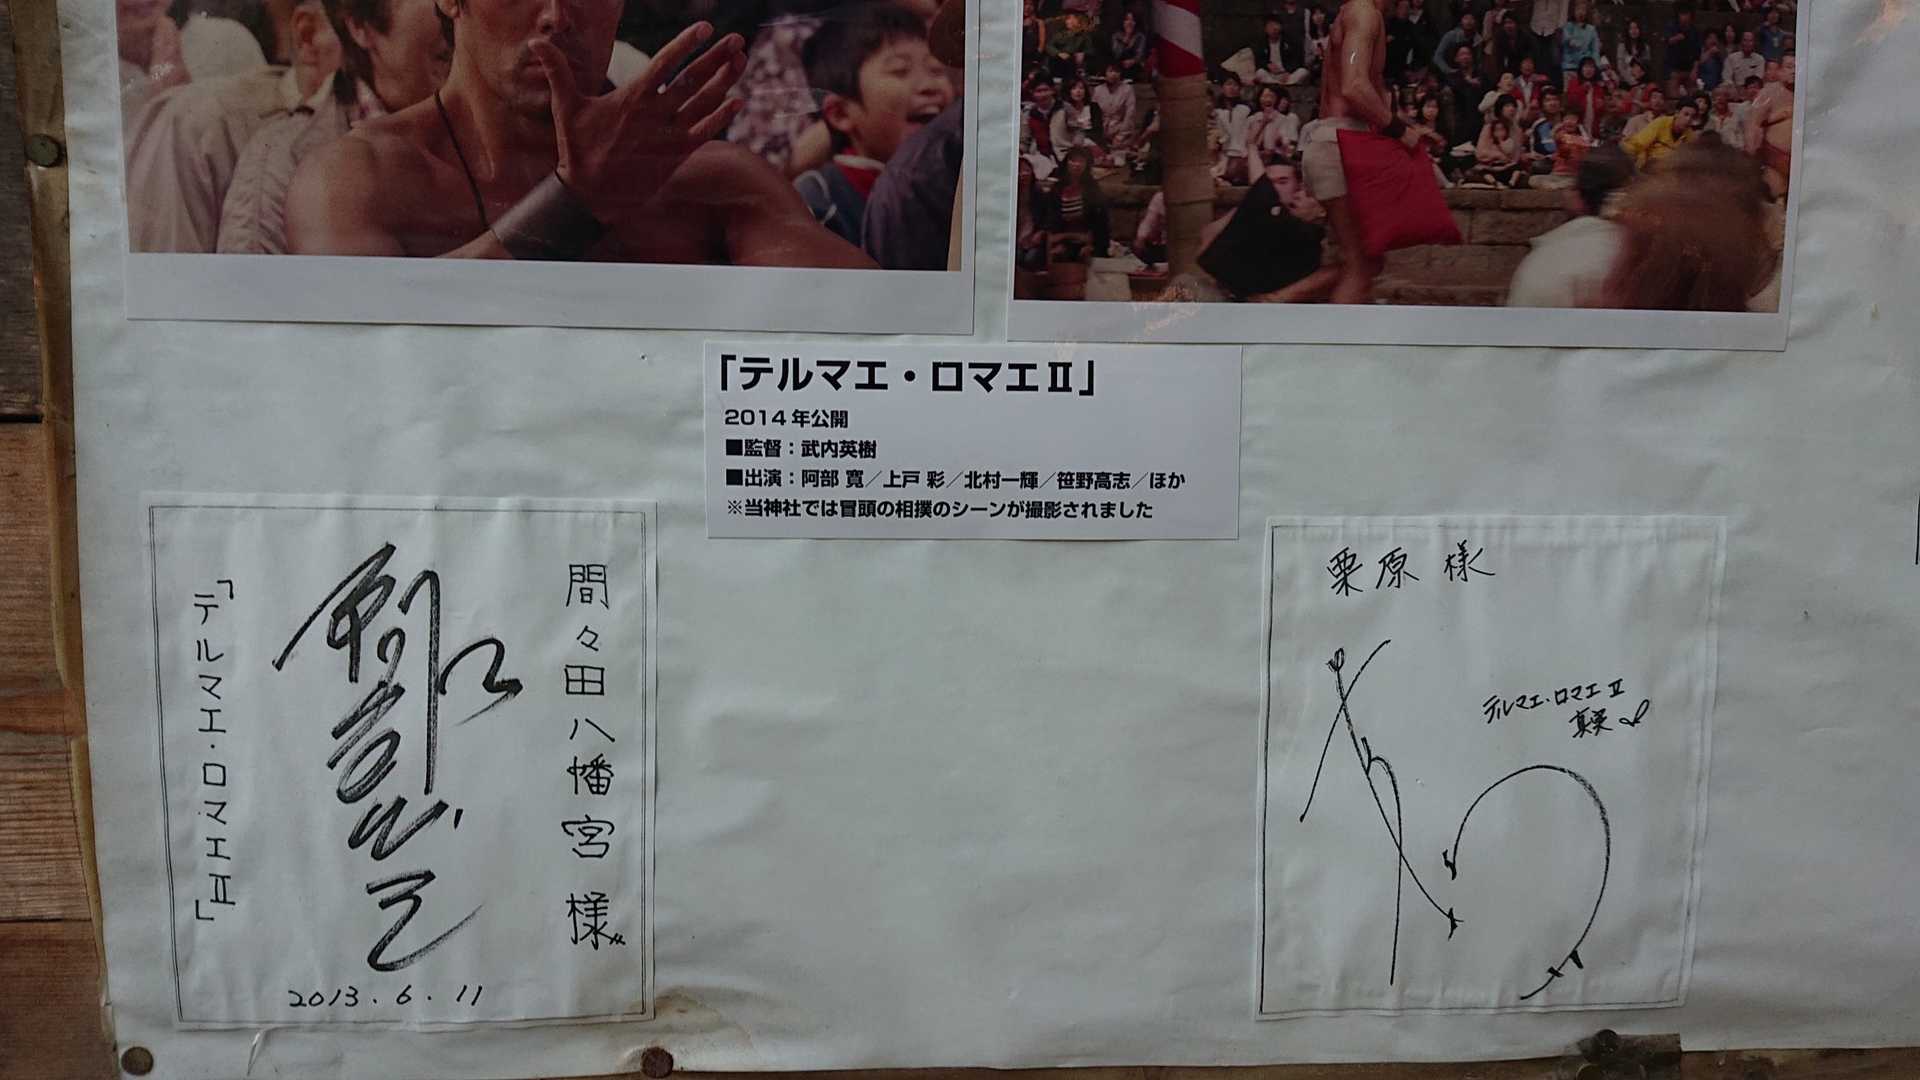 「テルマエ・ロマエⅡ」
2014年公開
■監督：武内英樹
■出演：阿部 寛／上戸 彩／北村一輝／笹野高志／ほか
※当神社では冒頭の相撲のシーンが撮影されました
間々田八幡宮 様
「テルマエ・ロマエⅡ」
2013.6.11
栗原 様
テルマエ・ロマエⅡ
真実